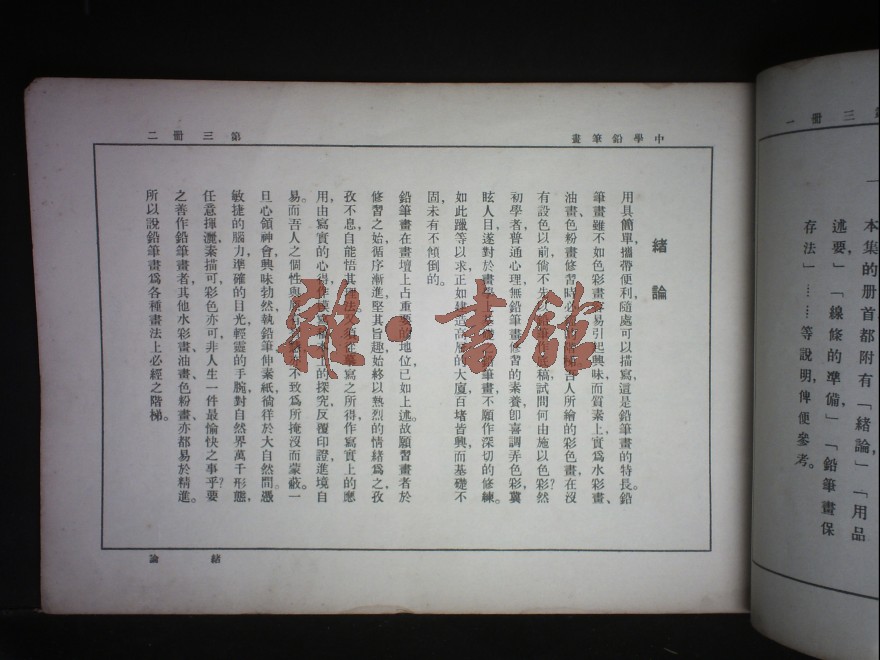 中學鉛筆畫
第三冊 二
緒論
用具簡單,攜帶便利,隨處可以描寫,這是鉛筆畫的特長。鉛
筆畫雖不如色彩畫容易引起興味,而質素上實爲水彩畫、
油畫、色粉畫修習時必
人所繪的彩色畫,在沒
有設色以前,倘不先
稿,試問何由施以色彩?然
初學者普通心理,無鉛筆畫修習的素養,卽喜調弄色彩,冀
眩人目,遂對於
鉛筆畫不願作深切的修練。
如此躐等以求正如建造高層的大廈,百堵皆興,而基礎不
固,未有不傾倒的。
鉛筆畫在畫壇上占重要的地位,已如上述。故願習畫者於
修習之始,循序漸進,堅其旨趣,始終以熱烈的情緒爲之,孜
孜不息,自能悟其理法。
寫之所得,作寫實上的應
用,由寫實的心得,作
上的探究,反覆印證,進境自
易。而吾人之個性與
不致爲所掩沒而蒙蔽。一
旦心領神會,興味勃然,執鉛筆,伸素紙,徜徉於大自然間。憑
敏捷的腦力,準確的目光,輕靈的手腕,對自然界萬千形態,
任意揮灑,素描可,彩色亦可,非人生一件最愉快之事乎?要
之善作鉛筆畫者,其他水彩畫、油畫、色粉畫,亦都易於精進。
所以說鉛筆畫爲各種畫法上必經之階梯。
緒論
雜·書館
第三冊 一
本集的册首都附有「緒論」,「用品
述要」,「線條的準備」,「鉛筆畫保
存法」……等說明,俾便參考。